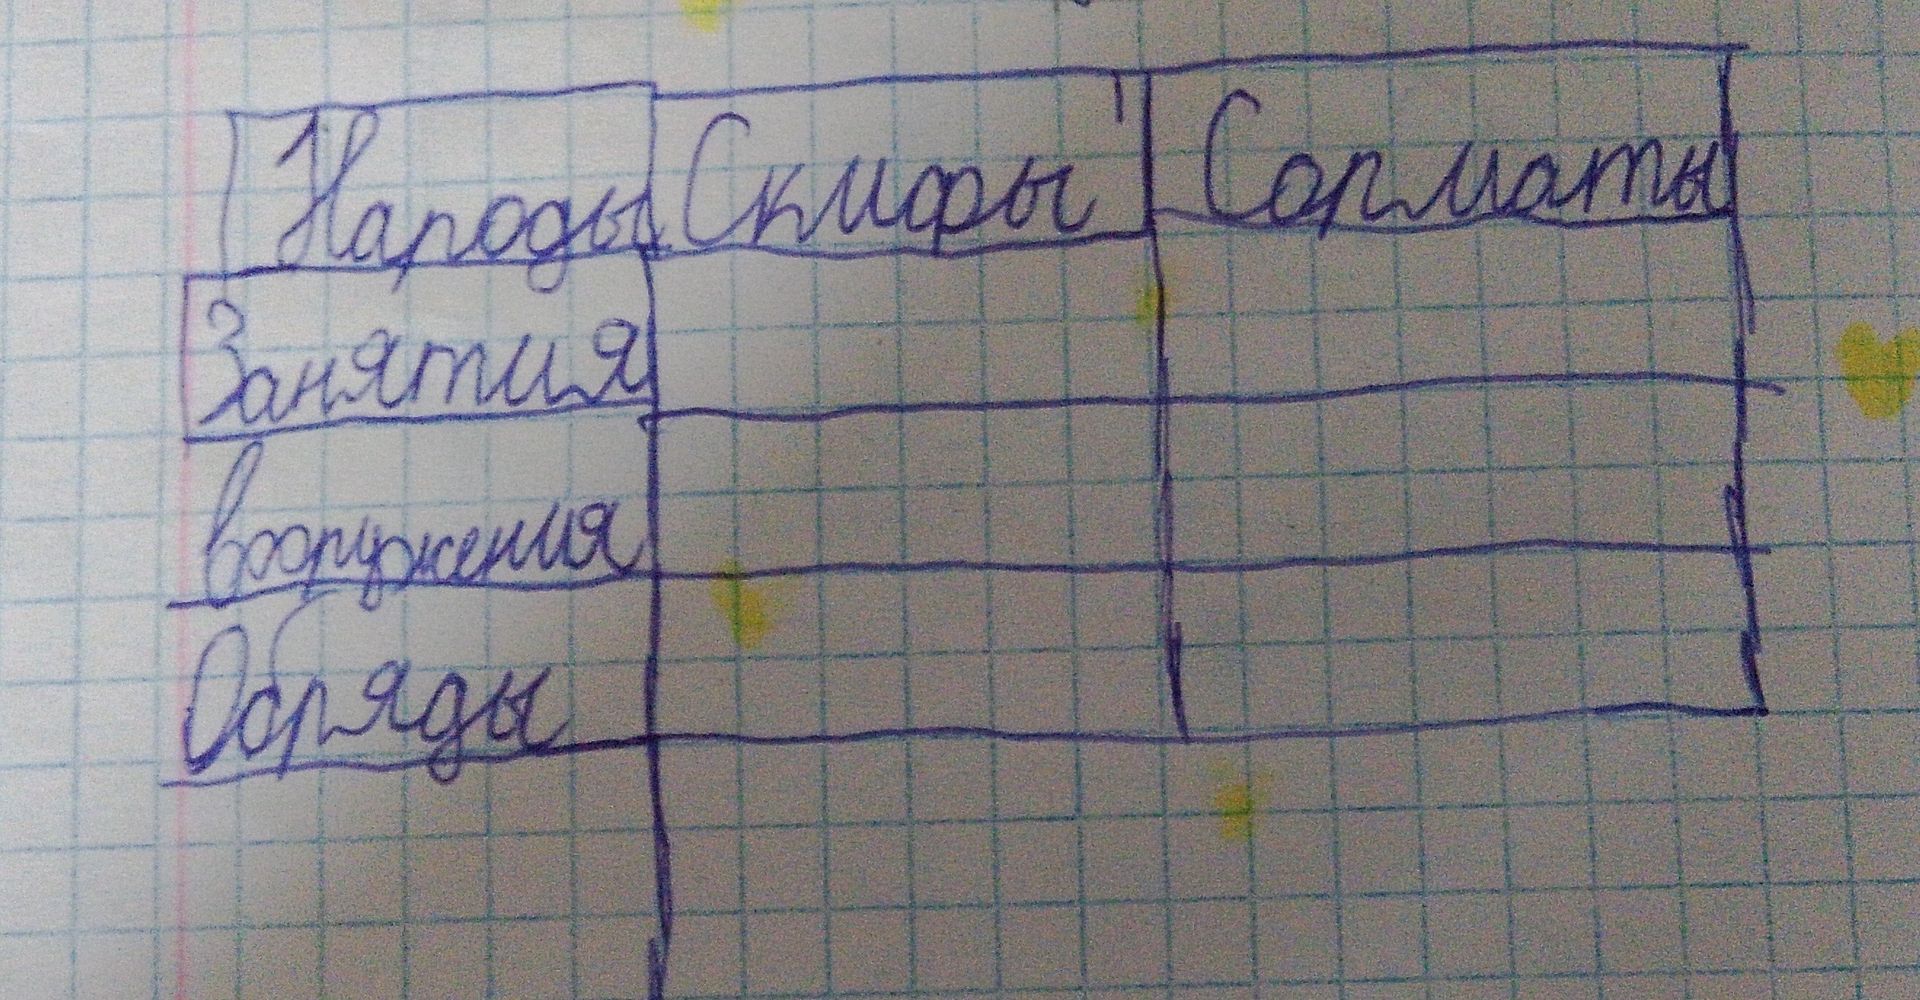 Народы Скифы Сарматы
Занятия
вооружения
Обряды